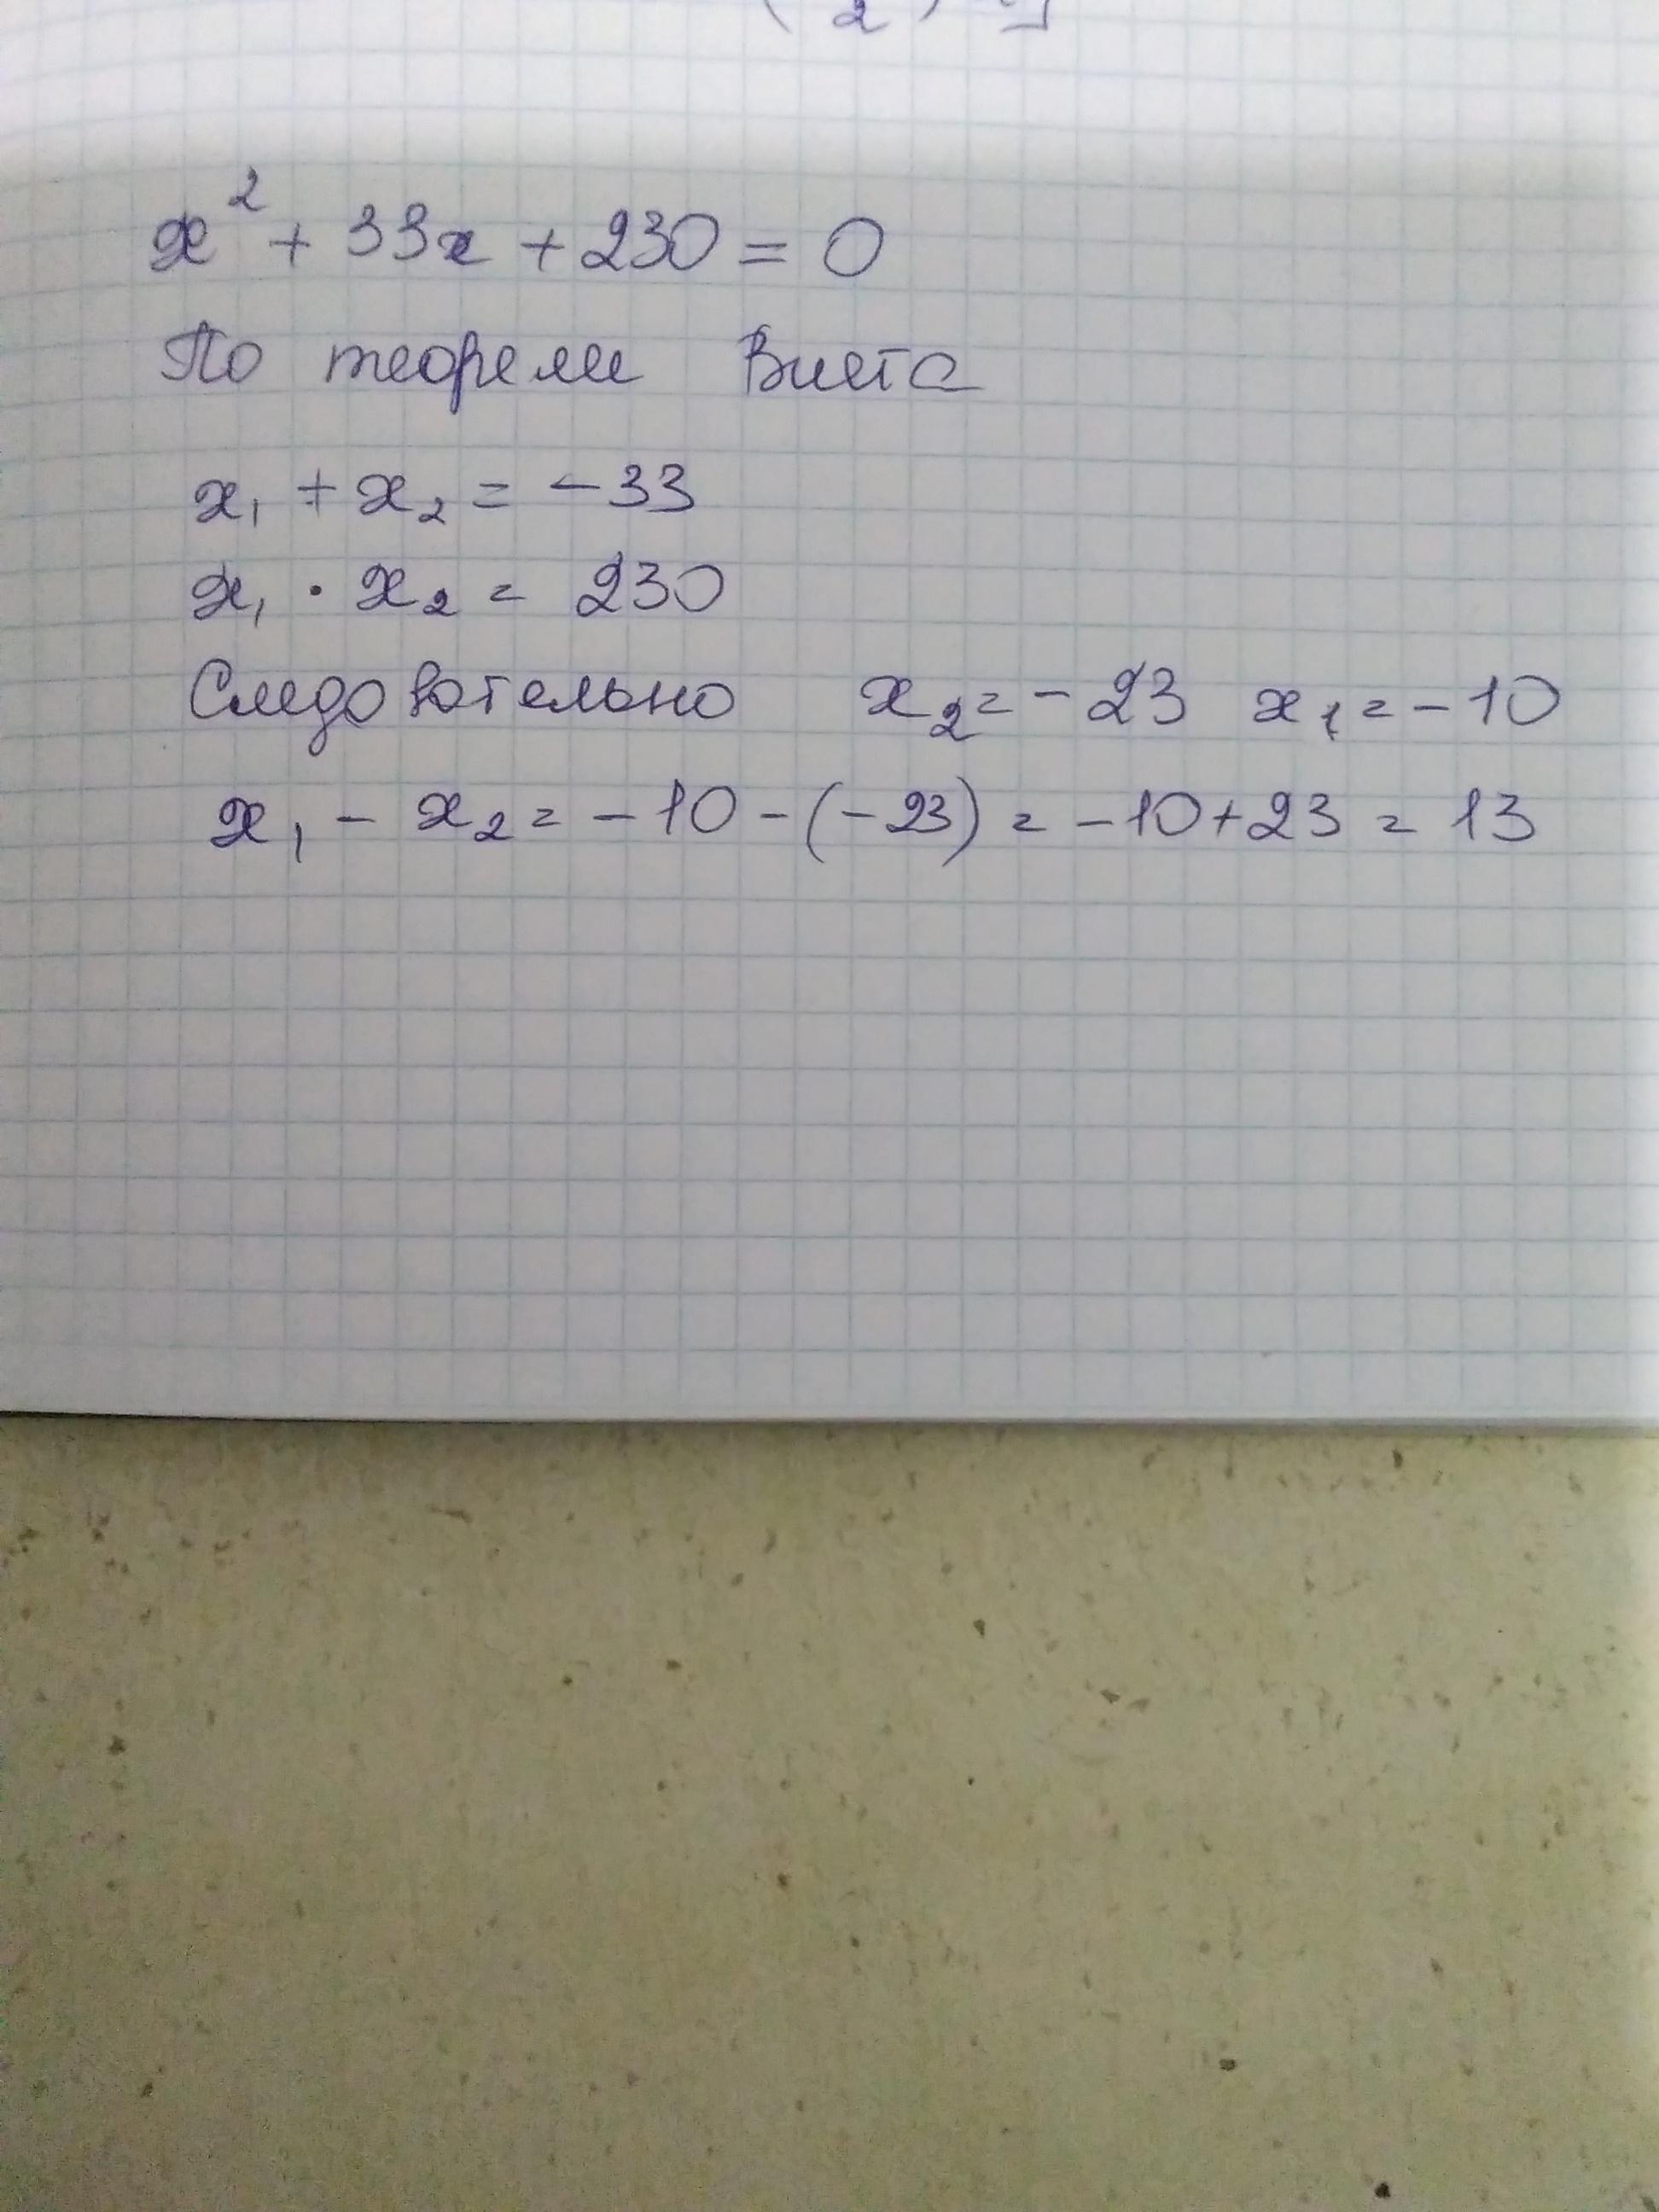 x² + 33x + 230 = 0
По теореме Виета
x₁ + x₂ = -33
x₁ · x₂ = 230
Следовательно x₂ = -23 x₁ = -10
x₁ - x₂ = -10 - (-23) = -10 + 23 = 13